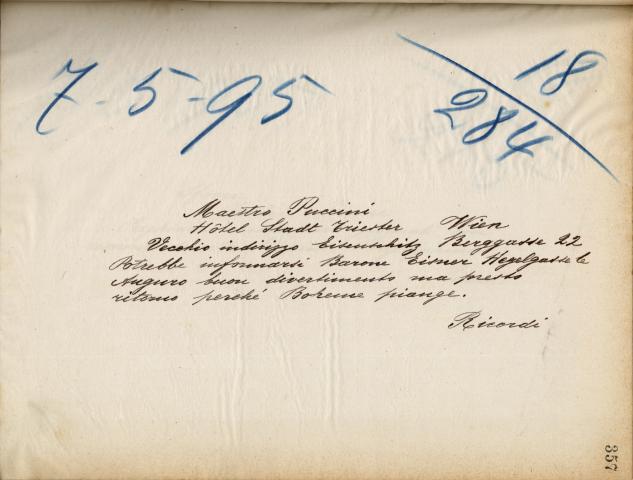 7-5-95
18
284
Maestro Puccini
Hôtel Stadt Triester Wien
Vecchio indirizzo Eisenschitz Berggasse 22
Potrebbe informarsi Barone Eisner Hegelgasse
Auguro buon divertimento ma presto
ritorno perché Boheme piange.
Ricordi
357